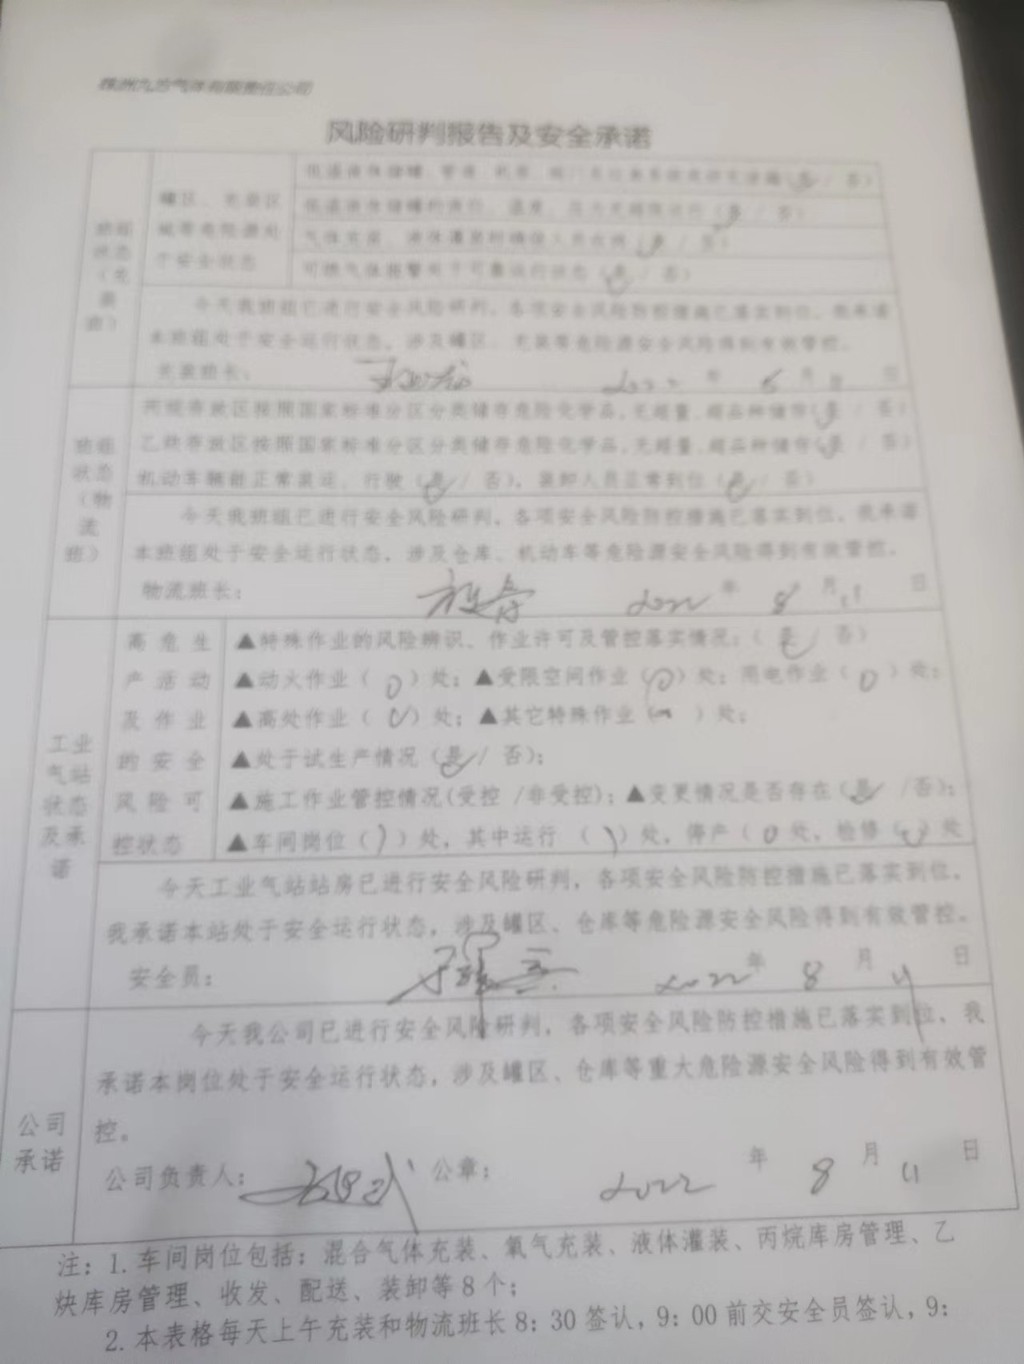 株洲九方气体有限责任公司
风险研判报告及安全承诺
罐区、充装区
域等危险源处
于安全状态
低温液体储罐
低温液体储罐的液位、温度、压力无超限运行（是 / 否）
（是 / 否）
可燃气体报警处于可靠运行状态（是 / 否）
班组
状态
（充
装
班）
今天我班组已进行安全风险研判，各项安全风险防控措施已落实到位，我承诺
本班组处于安全运行状态，涉及罐区、充装等危险源安全风险得到有效管控。
充装班长： 2022 年 月 日
班组
状态
（物
流
班）
丙烷存放区按照国家标准分区分类储存危险化学品，无超量、超品种储存（是 / 否）
乙炔存放区按照国家标准分区分类储存危险化学品，无超量、超品种储存（是 / 否）
机动车辆能正常装运、行驶（是 / 否），装卸人员正常到位（是 / 否）
今天我班组已进行安全风险研判，各项安全风险防控措施已落实到位，我承诺
本班组处于安全运行状态，涉及仓库、机动车等危险源安全风险得到有效管控。
物流班长： 2022 年 8 月 11 日
工业
气站
状态
及承
诺
高危生
产活动
及作业
的安全
风险可
控状态
▲特殊作业的风险辨识、作业许可及管控落实情况：（是 / 否）
▲动火作业（0）处；▲受限空间作业（0）处；用电作业（0）处；
▲高处作业（0）处；▲其它特殊作业（ ）处；
▲处于试生产情况（是 / 否）；
▲施工作业管控情况(受控 /非受控)；▲变更情况是否存在（是 /否）；
▲车间岗位（）处，其中运行（）处，停产（0 处，检修（）处
今天工业气站站房已进行安全风险研判，各项安全风险防控措施已落实到位。
我承诺本站处于安全运行状态，涉及罐区、仓库等危险源安全风险得到有效管控。
安全员： 2022 年 8 月 11 日
公司
承诺
今天我公司已进行安全风险研判，各项安全风险防控措施已落实到位，我
承诺本岗位处于安全运行状态，涉及罐区、仓库等重大危险源安全风险得到有效管
控。
公司负责人： 公章： 2022 年 8 月 11 日
注：1.车间岗位包括：混合气体充装、氧气充装、液体灌装、丙烷库房管理、乙
炔库房管理、收发、配送、装卸等8个；
2.本表格每天上午充装和物流班长8：30签认，9：00前交安全员签认，9：